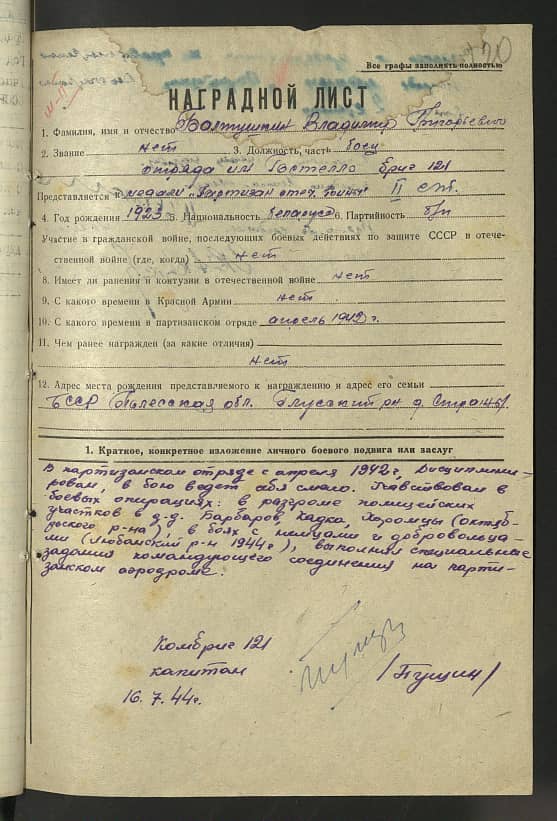 20
Все графы заполнять полностью
НАГРАДНОЙ ЛИСТ
1. Фамилия, имя и отчество Владимир Григорьевич
2. Звание нет 3. Должность, часть боец
отряда им Гастелло бриг 121
Представляется к медали "Партизан отеч. войны" II степ.
4. Год рождения 1923 5. Национальность беларус 6. Партийность б/п
Участие в гражданской войне, последующих боевых действиях по защите СССР в отече-
ственной войне (где, когда) нет
8. Имеет ли ранения и контузии в отечественной войне нет
9. С какого времени в Красной Армии нет
10. С какого времени в партизанском отряде апрель 1942 г.
11. Чем ранее награжден (за какие отличия)
нет
12. Адрес места рождения представляемого к награждению и адрес его семьи
БССР Полесская обл. Глусский рн д.
1. Краткое, конкретное изложение личного боевого подвига или заслуг
В партизанском отряде с апреля 1942 г, Дисциплини-
рован, в бою ведет себя смело. Участвовал в
боевых операциях: в разгроме полицейских
участков в д.д. Барбаров, Кадка, Хоромцы (октяб-
рьского р-на), в боях с немцами и добровольца-
ми (Любанский р-н 1944 г), выполнял специальные
задания командующего соединения на парти-
занском аэродроме.
Комбриг 121
капитан /Пущин/
16.7.44г.